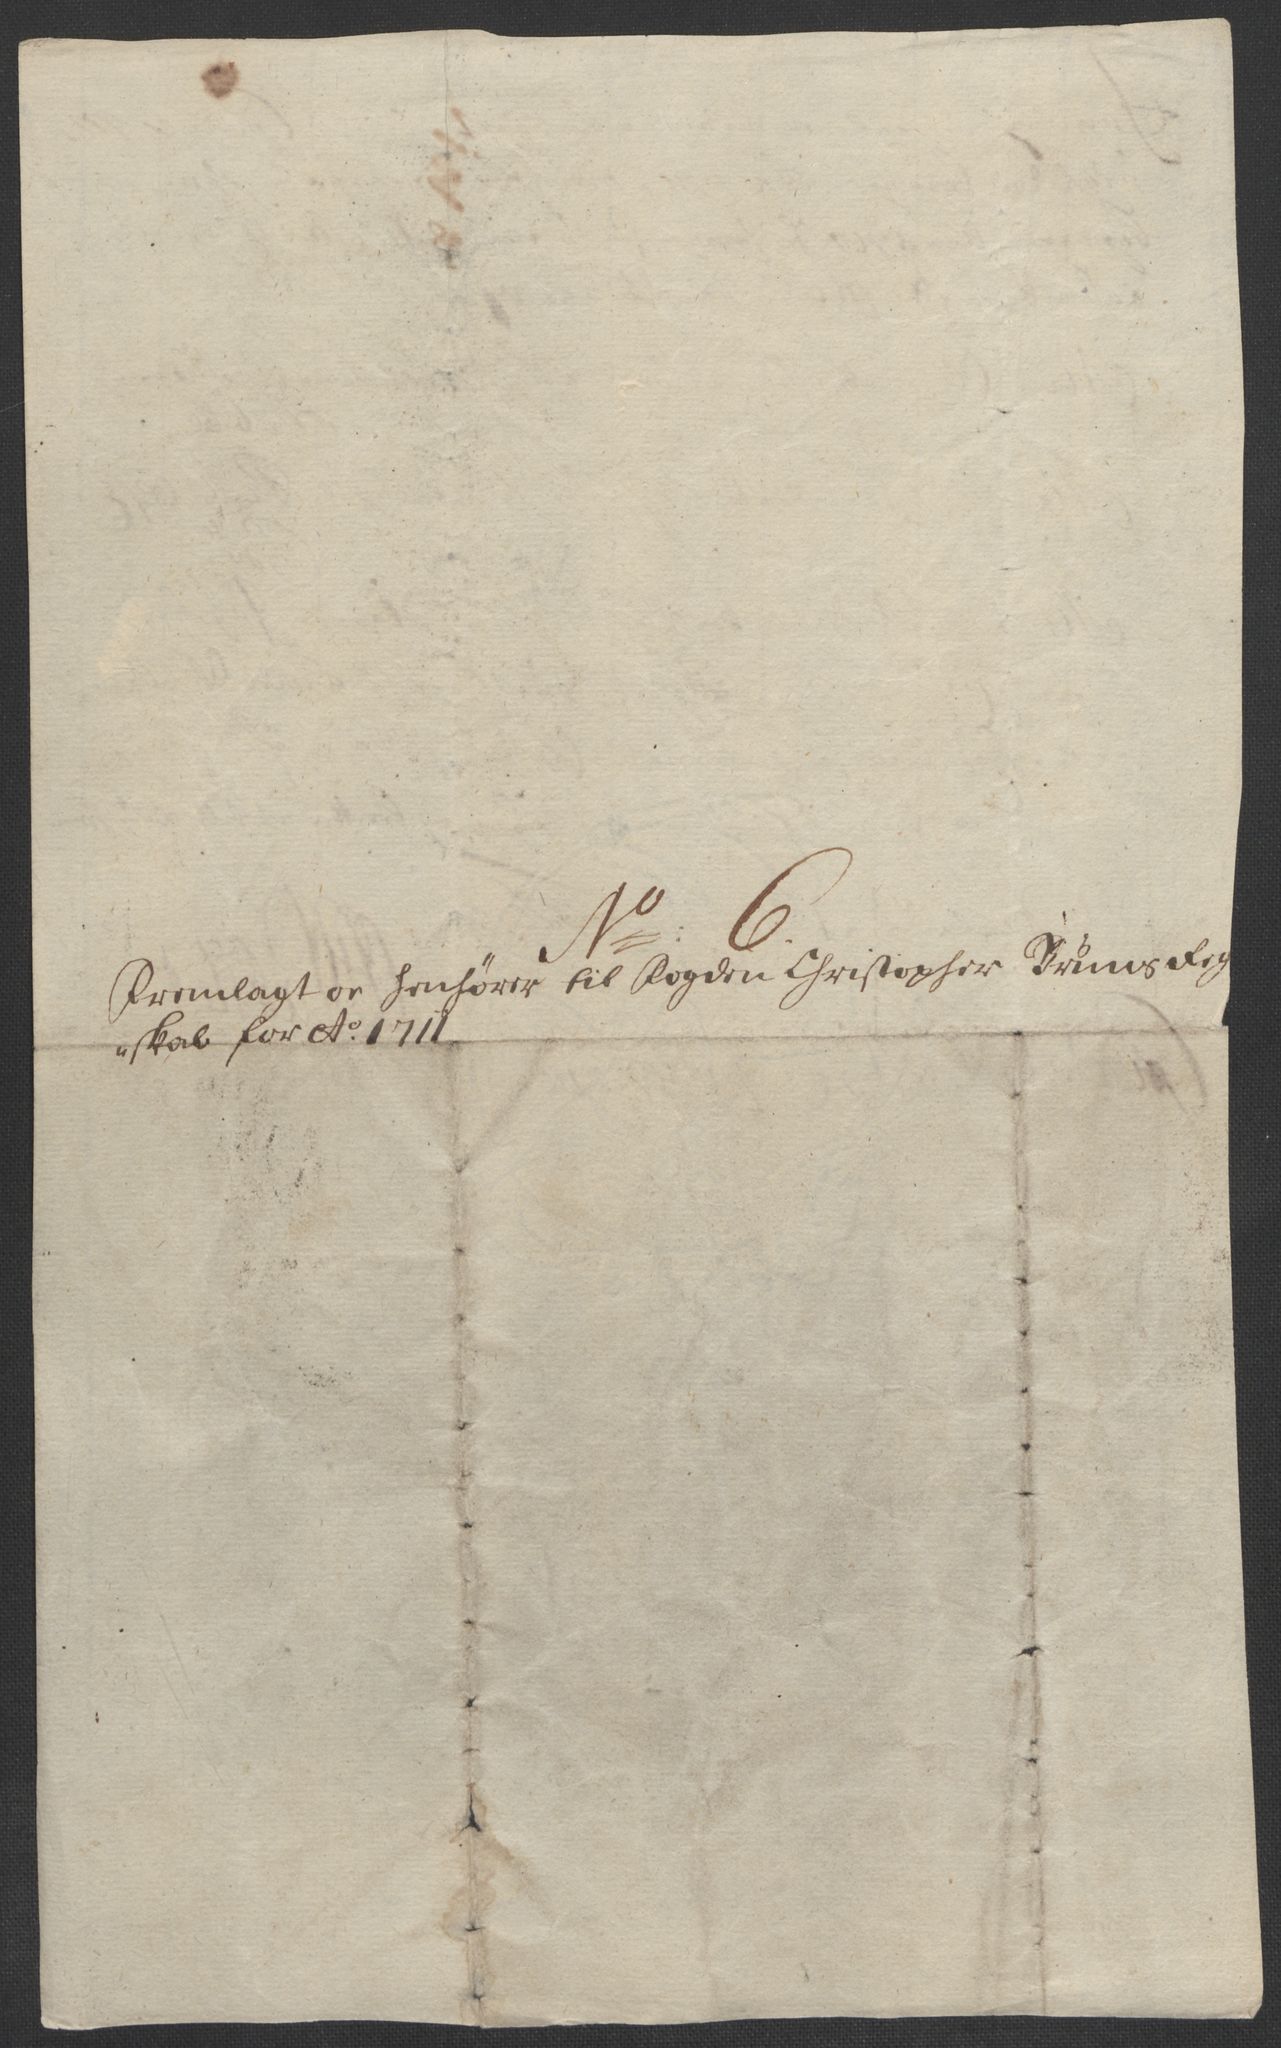 No. 6.
Fremlagt oc henhörer til Fogden Christopher Bruuns Reg
"skab for Ao. 1711